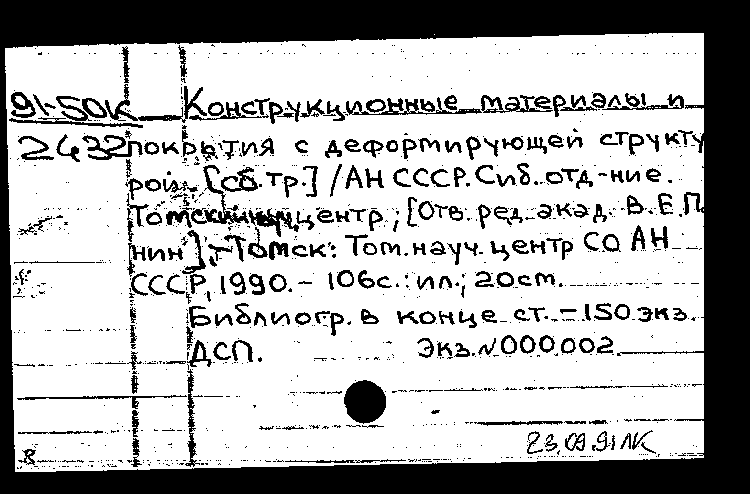 91-50к Конструкционные материалы и
2432 покрытия с деформирующей структу
рой. [сб. тр.] / АН СССР. Сиб. отд-ние.
Томский науч. центр; [Отв. ред. акад. В. Е. П
нин]. - Томск: Том. науч. центр СО АН
СССР, 1990. - 106с.: ил.; 20 см.
Библиогр. в конце ст. - 150 экз.
ДСП. Экз. № 000002.
23.09.91 ЛК